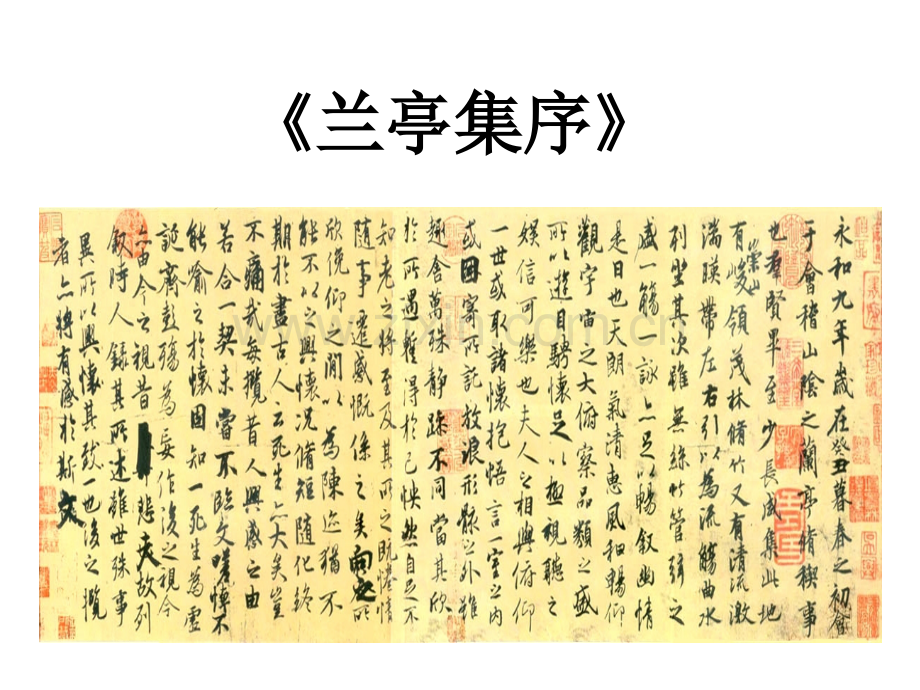 《兰亭集序》
永和九年歲在癸丑暮春之初會
于會稽山陰之蘭亭脩稧事
也群賢畢至少長咸集此地
有崇山峻領茂林脩竹又有清流激
湍暎帶左右引以為流觴曲水
列坐其次雖無絲竹管弦之
盛一觴一詠亦足以暢敘幽情
是日也天朗氣清惠風和暢仰
觀宇宙之大俯察品類之盛
所以遊目騁懷足以極視聽之
娛信可樂也夫人之相與俯仰
一世或取諸懷抱悟言一室之內
或因寄所託放浪形骸之外雖
趣舍萬殊靜躁不同當其欣
於所遇蹔得於己怏然自足不
知老之將至及其所之既惓情
隨事遷感慨係之矣向之所
欣俛仰之間以為陳迹猶不
能不以之興懷況脩短隨化終
期於盡古人云死生亦大矣豈
不痛哉每攬昔人興感之由
若合一契未嘗不臨文嗟悼不
能喻之於懷固知一死生為虛
誕齊彭殤為妄作後之視今
亦由今之視昔悲夫故列
敘時人錄其所述雖世殊事
異所以興懷其致一也後之攬
者亦將有感於斯文
www.zixin.com.cn